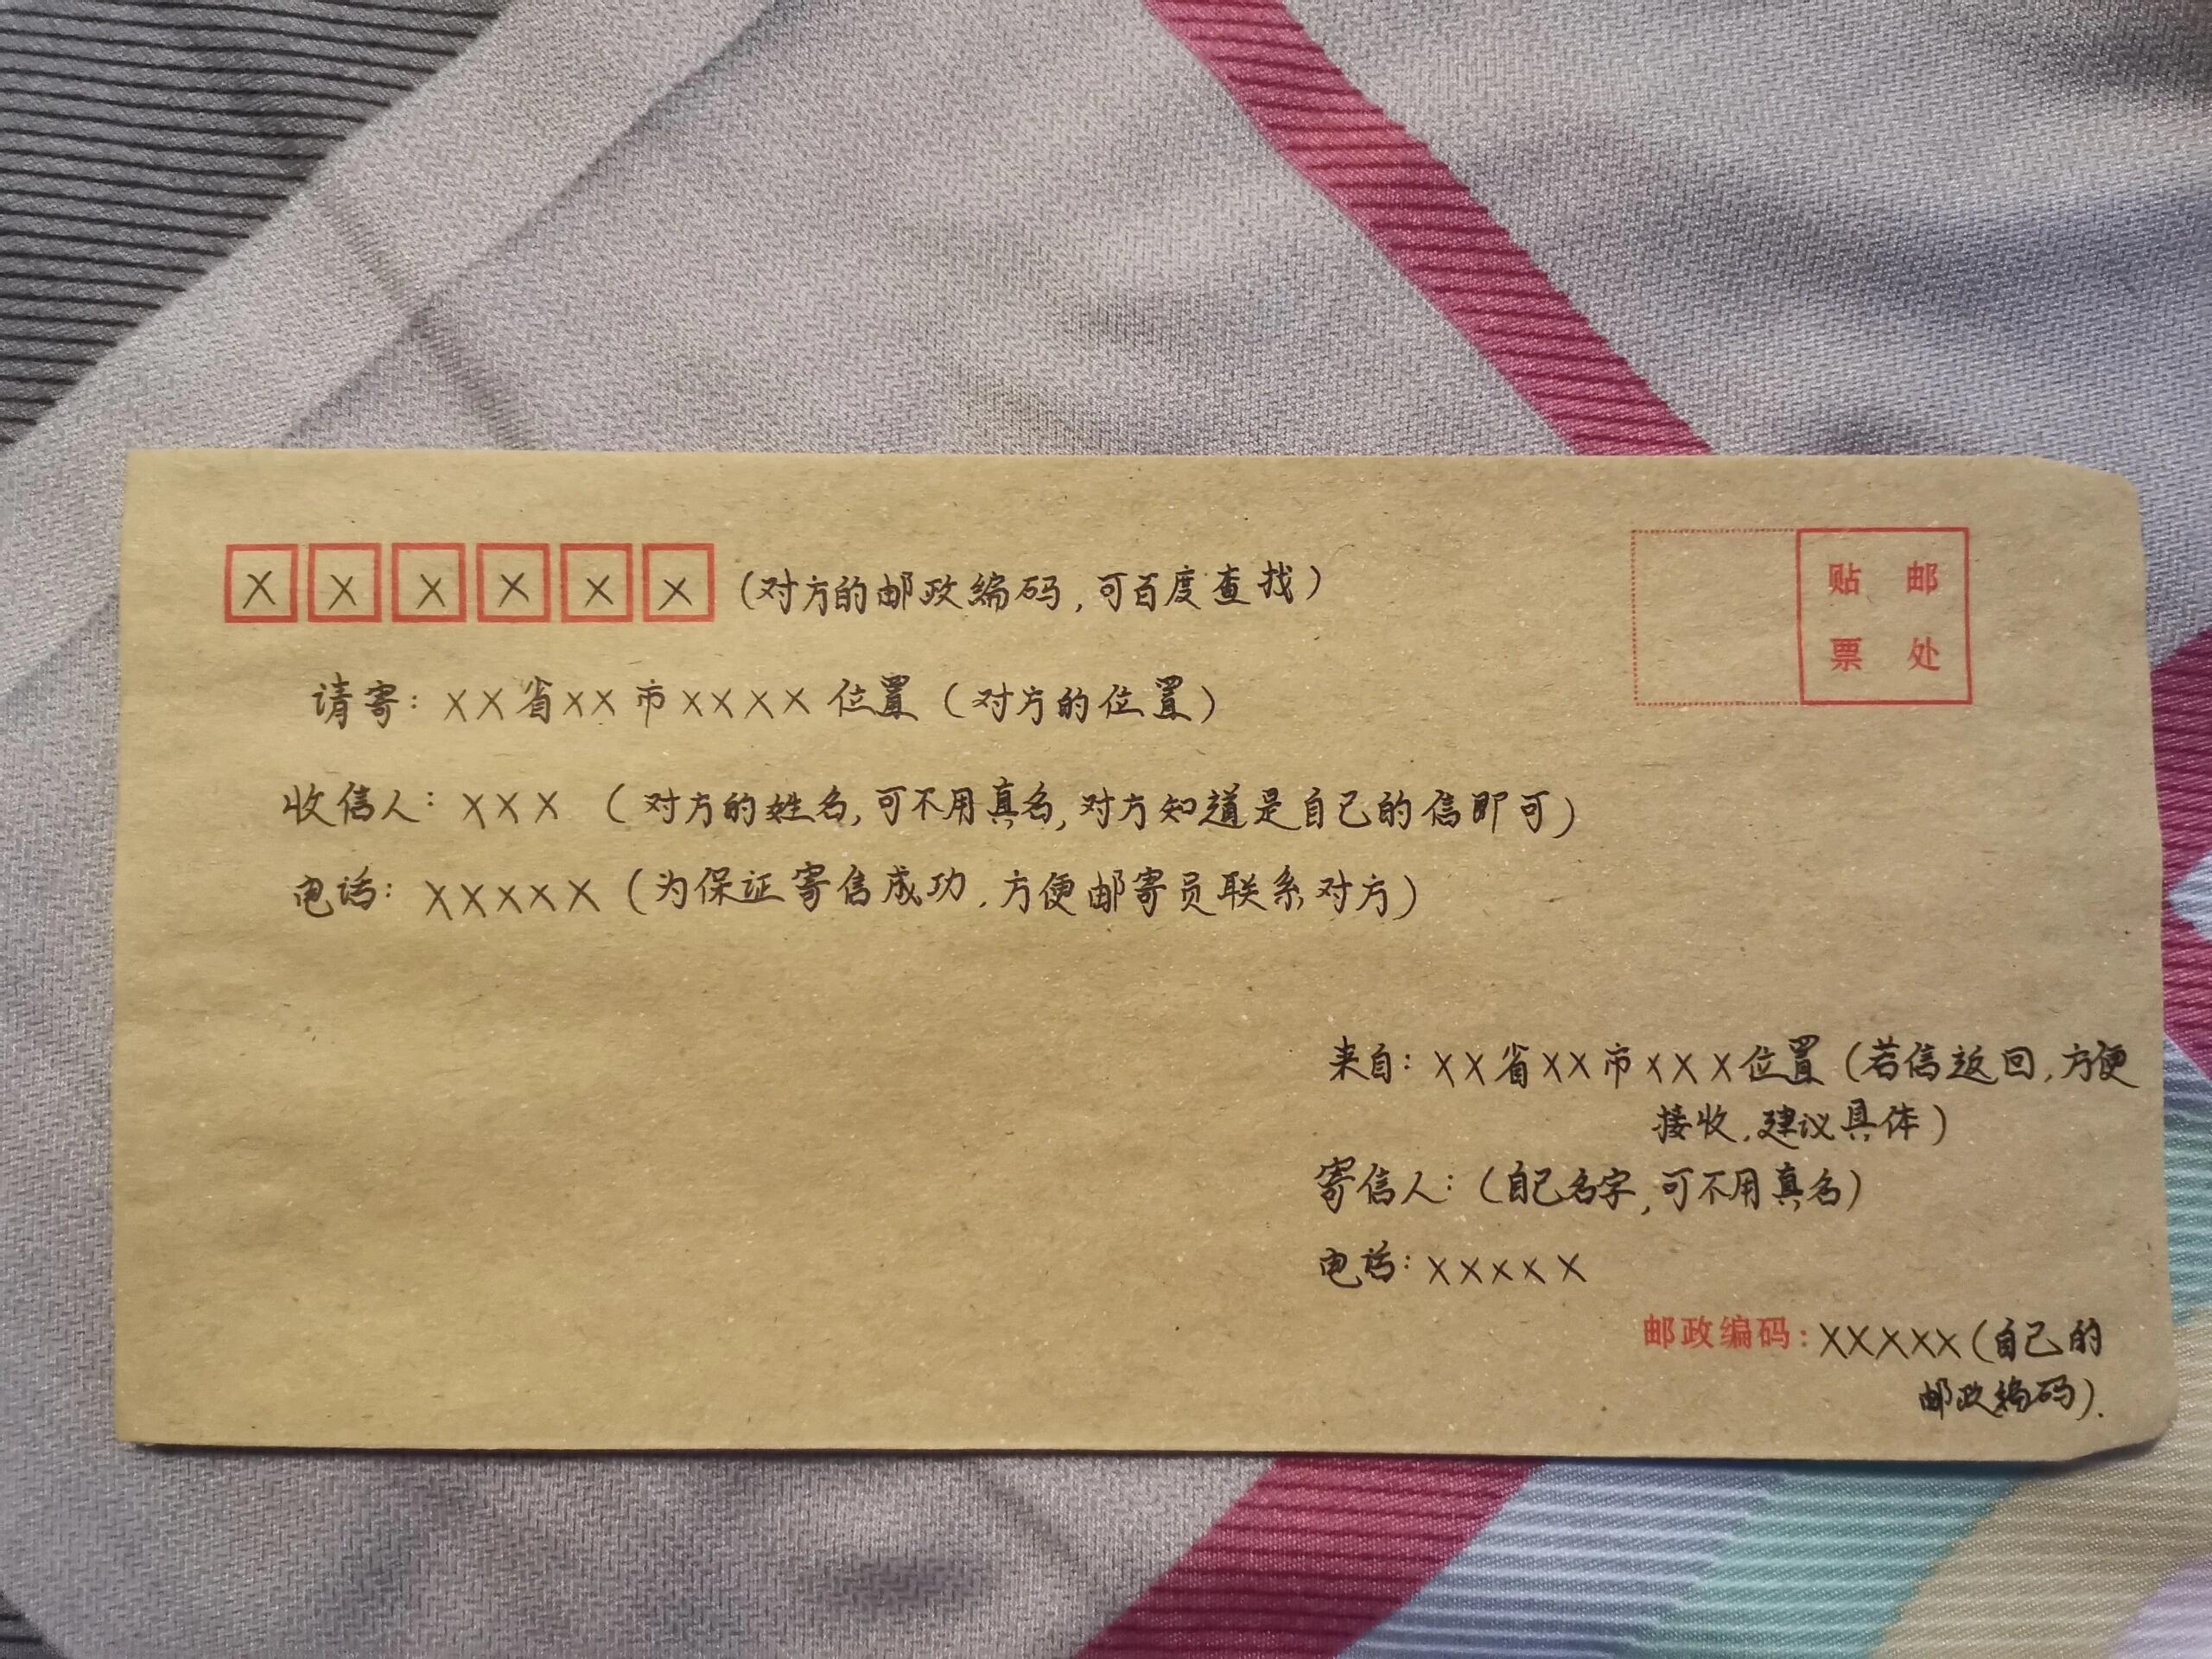 XXXXXX (对方的邮政编码,可百度查找)
贴 邮
票 处
请寄: XX省XX市XXXX位置(对方的位置)
收信人: XXX (对方的姓名,可不用真名,对方知道是自己的信即可)
电话: XXXXX (为保证寄信成功,方便邮寄员联系对方)
来自: XX省XX市XXX位置(若信返回,方便
接收,建议具体)
寄信人: (自己名字,可不用真名)
电话: XXXXX
邮政编码: XXXXX(自己的
邮政编码).